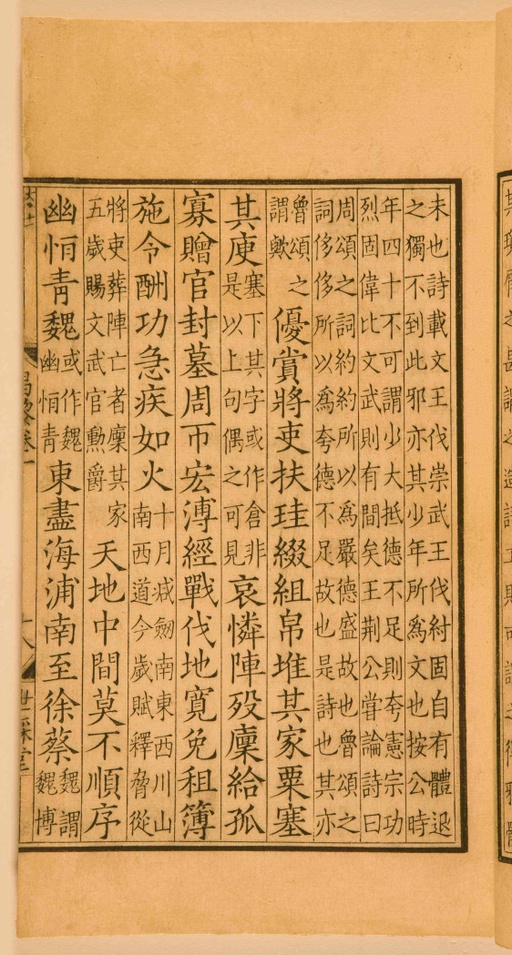 未也詩載文王伐崇武王伐紂固自有體退
之獨不到此邪亦其少年所爲文也按公時
年四十不可謂少大抵德不足則夸憲宗功
烈固偉比文武則有間矣王荊公嘗論詩曰
周頌之詞約約所以爲嚴德盛故也魯頌之
詞侈侈所以爲夸德不足故也是詩也其亦
魯頌之
謂歟
優賞將吏扶珪綴組帛堆其家粟塞
其庾
塞下其字或作倉非
是以上句偶之可見
哀憐陣歿廩給孤
寡贈官封墓周帀宏溥經戰伐地寬免租簿
施令酬功急疾如火
十月減劒南東西川山
南西道今歲賦釋脅從
將吏葬陣亡者廩其家
五歲賜文武官勳爵
天地中間莫不順序
幽恒青魏
或作魏
幽恒青
東盡海浦南至徐蔡
魏謂
魏博